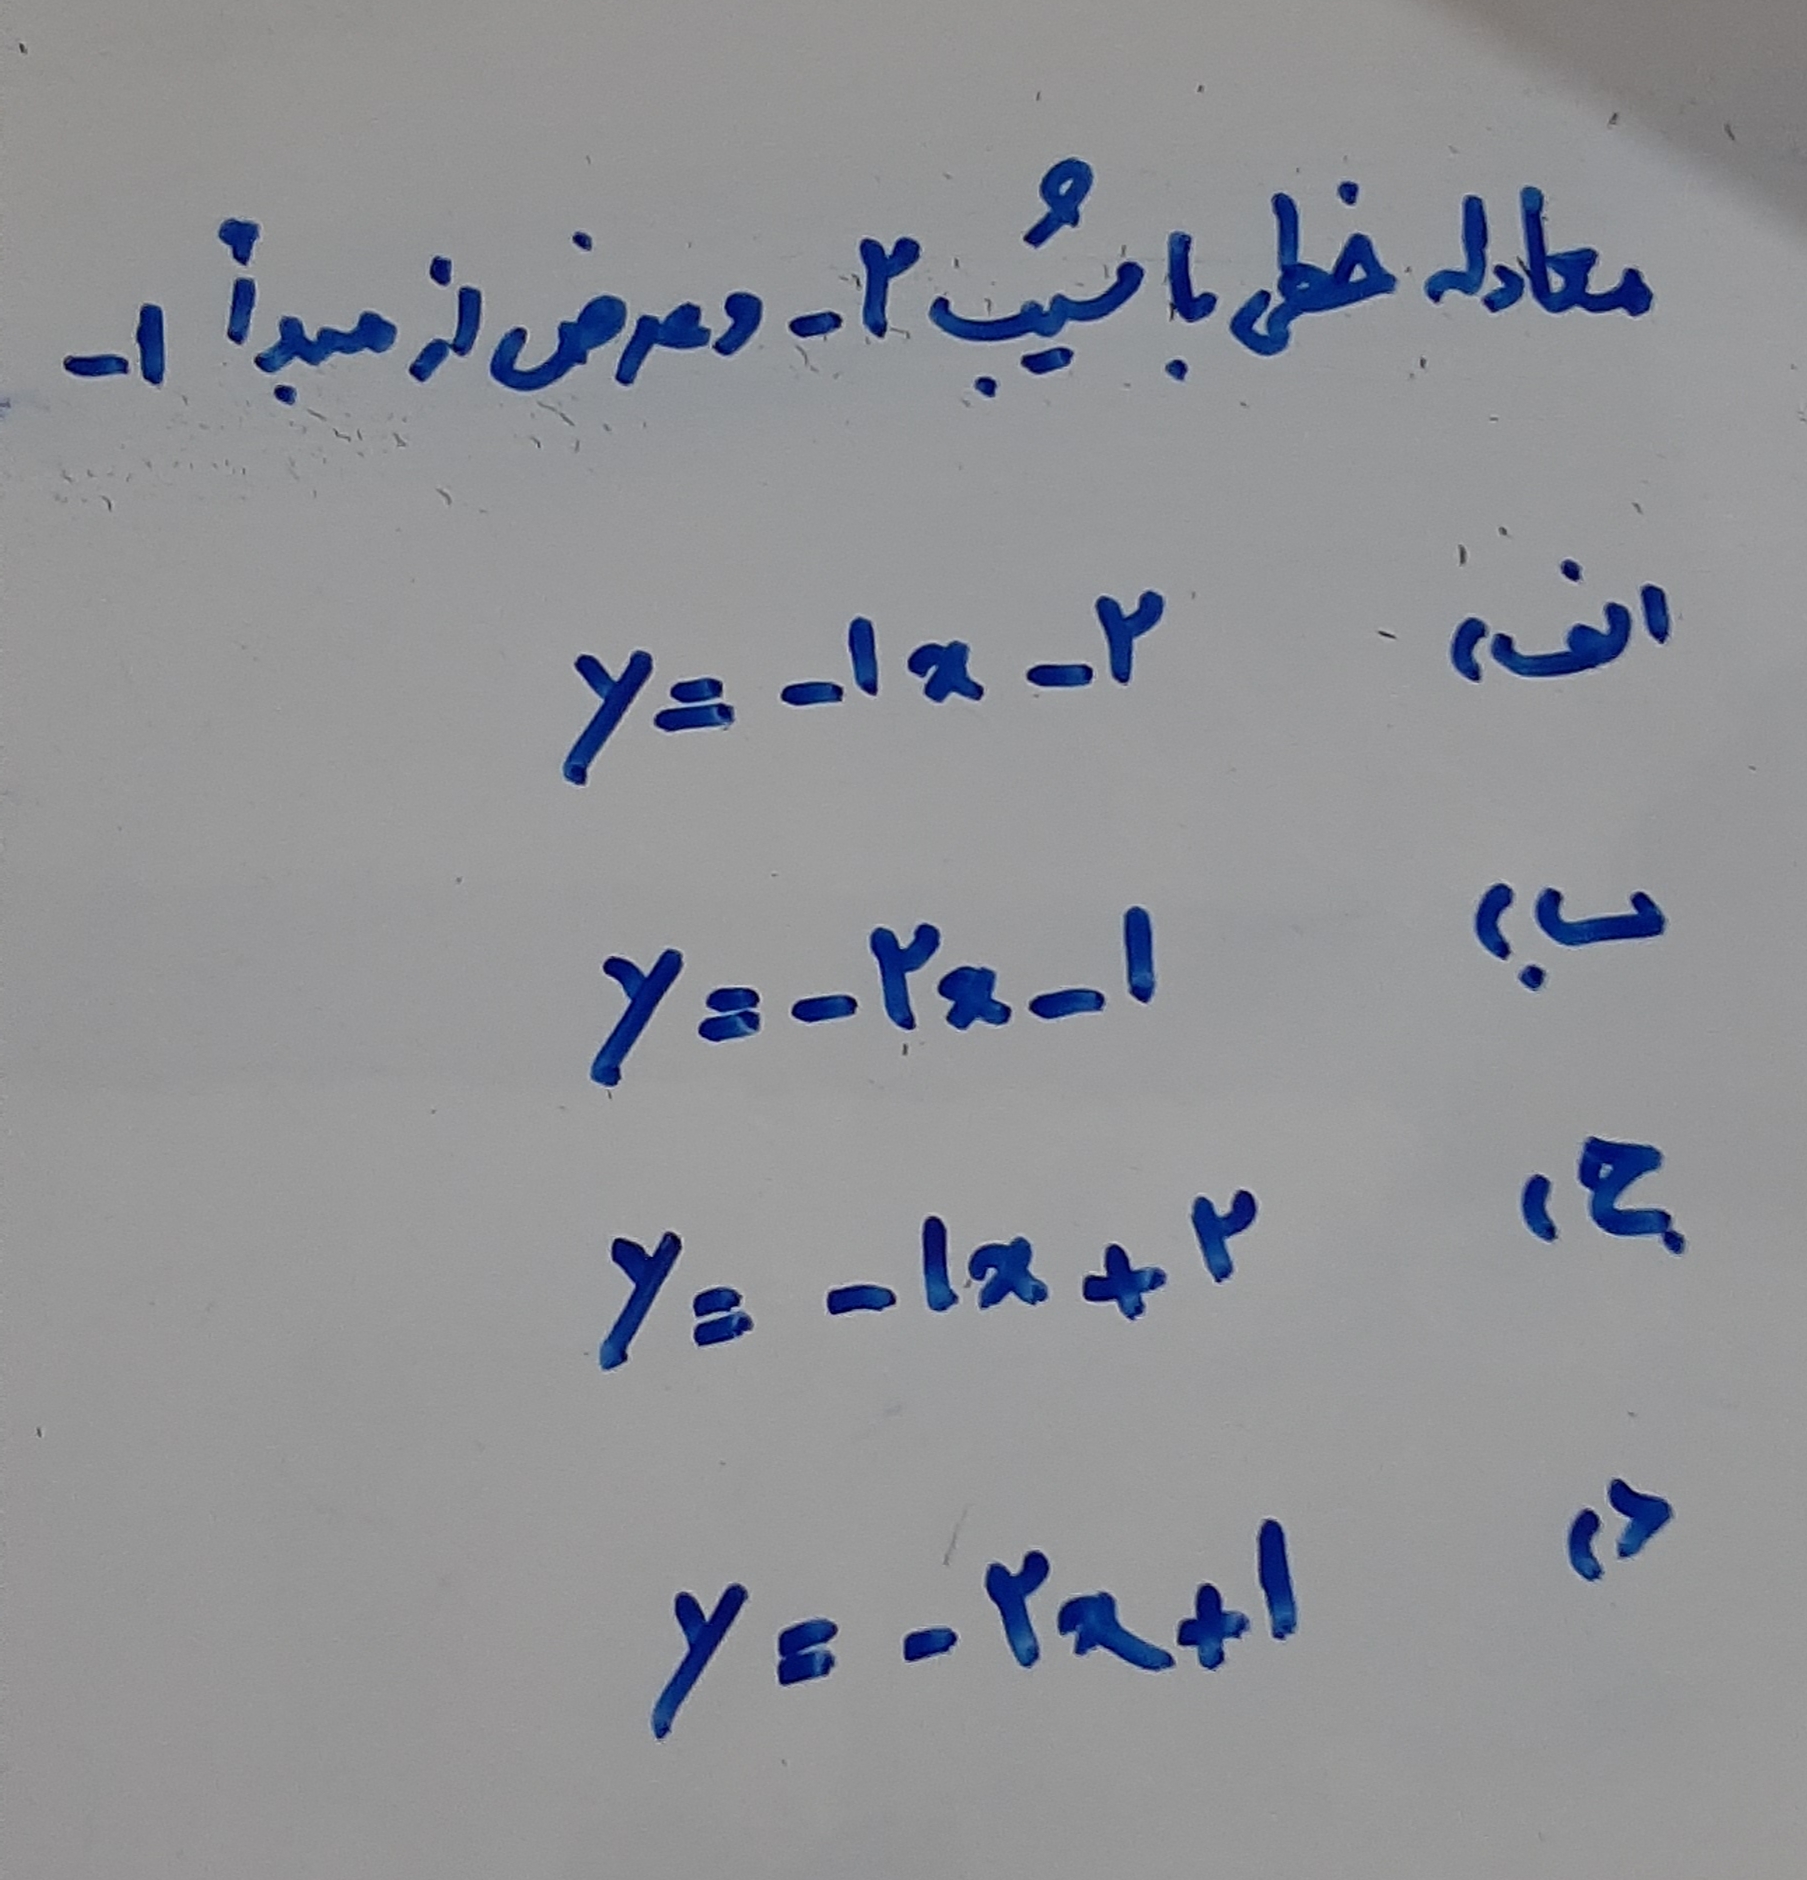 معادله خطی با شیب ۲- و عرض از مبدأ ۱-
الف) y = -۱x - ۲
ب) y = -۲x - ۱
ج) y = -۱x + ۲
د) y = -۲x + ۱